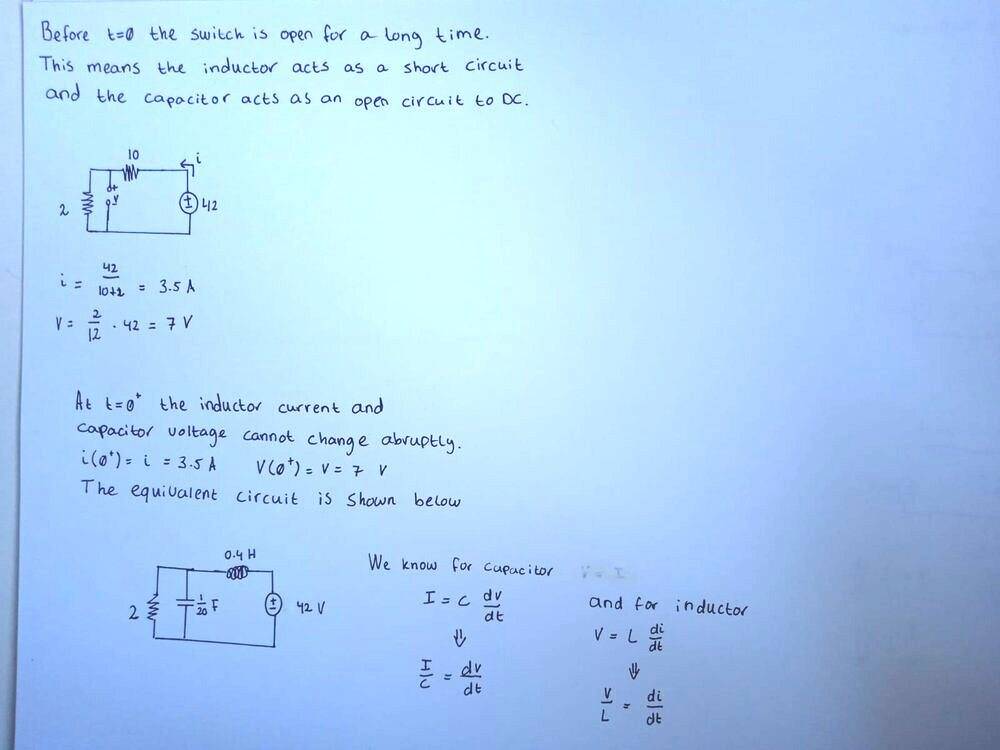 Before t=0 the switch is open for a long time.
This means the inductor acts as a short circuit
and the capacitor acts as an open circuit to DC.
10
i
+
V
2
±
42
i = 42/10+2 = 3.5 A
V = 2/12 . 42 = 7 V
At t=0⁺ the inductor current and
capacitor voltage cannot change abruptly.
i(0⁺) = i = 3.5 A V(0⁺) = V = 7 V
The equivalent circuit is shown below
0.4 H
2
1/20 F
±
42 V
We know for capacitor
I = C dv/dt
⇓
I/C = dv/dt
and for inductor
V = L di/dt
⇓
V/L = di/dt